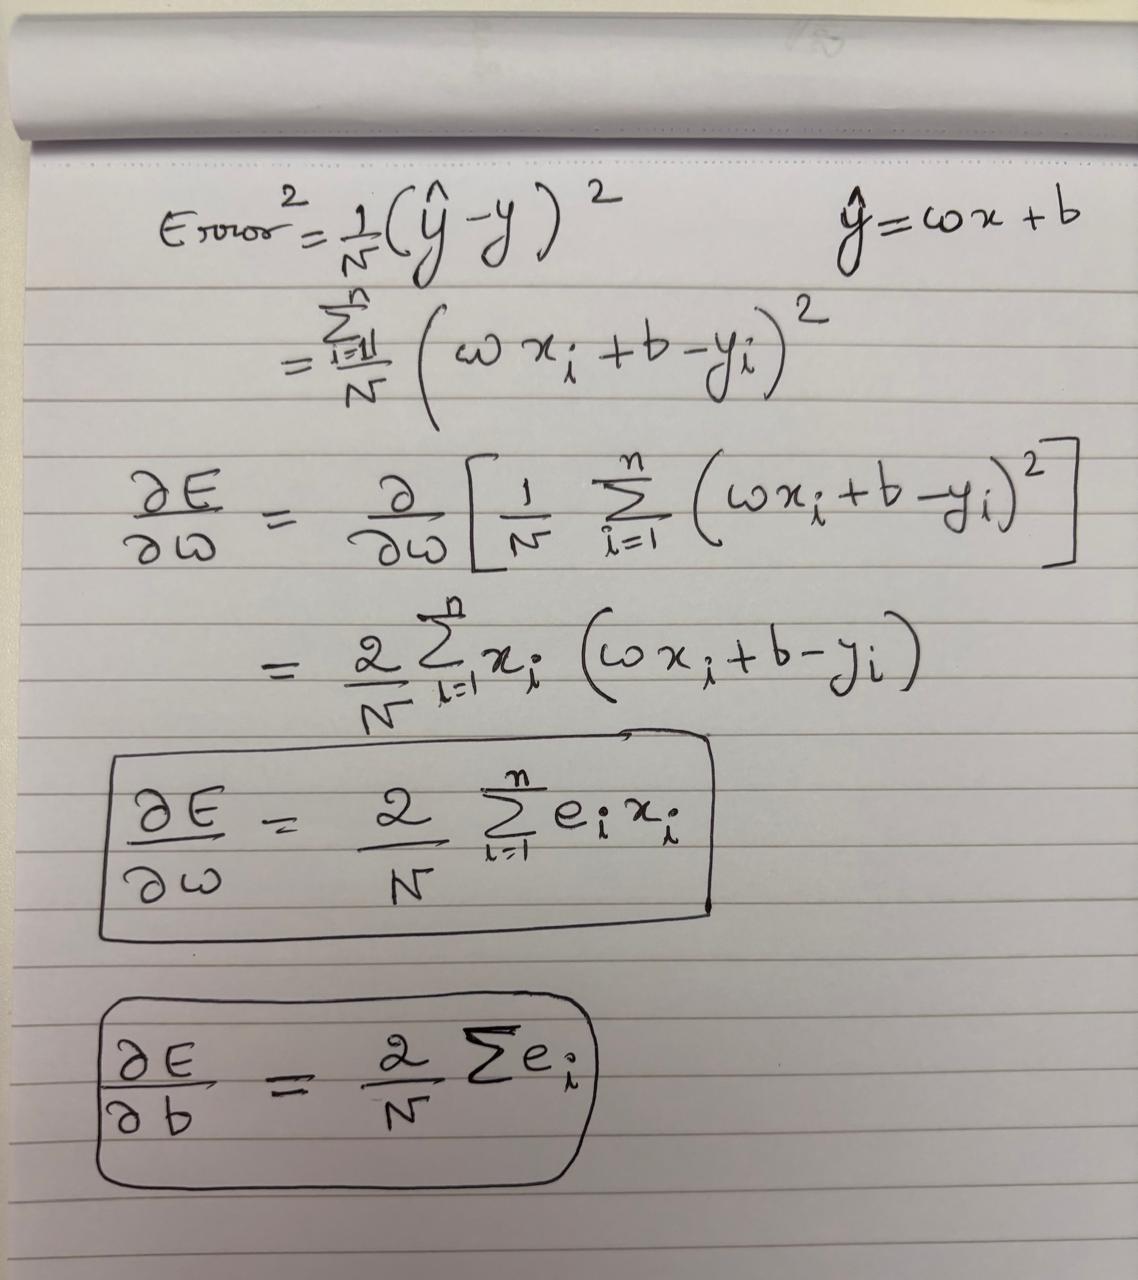 Error² = 1/N (ŷ - y)²    ŷ = wx + b
= Σ_{i=1}^{n} 1/N (w x_i + b - y_i)²
∂E/∂w = ∂/∂w [1/N Σ_{i=1}^{n} (wx_i + b - y_i)²]
= 2/N Σ_{i=1}^{n} x_i (wx_i + b - y_i)
∂E/∂w = 2/N Σ_{i=1}^{n} e_i x_i
∂E/∂b = 2/N Σ e_i